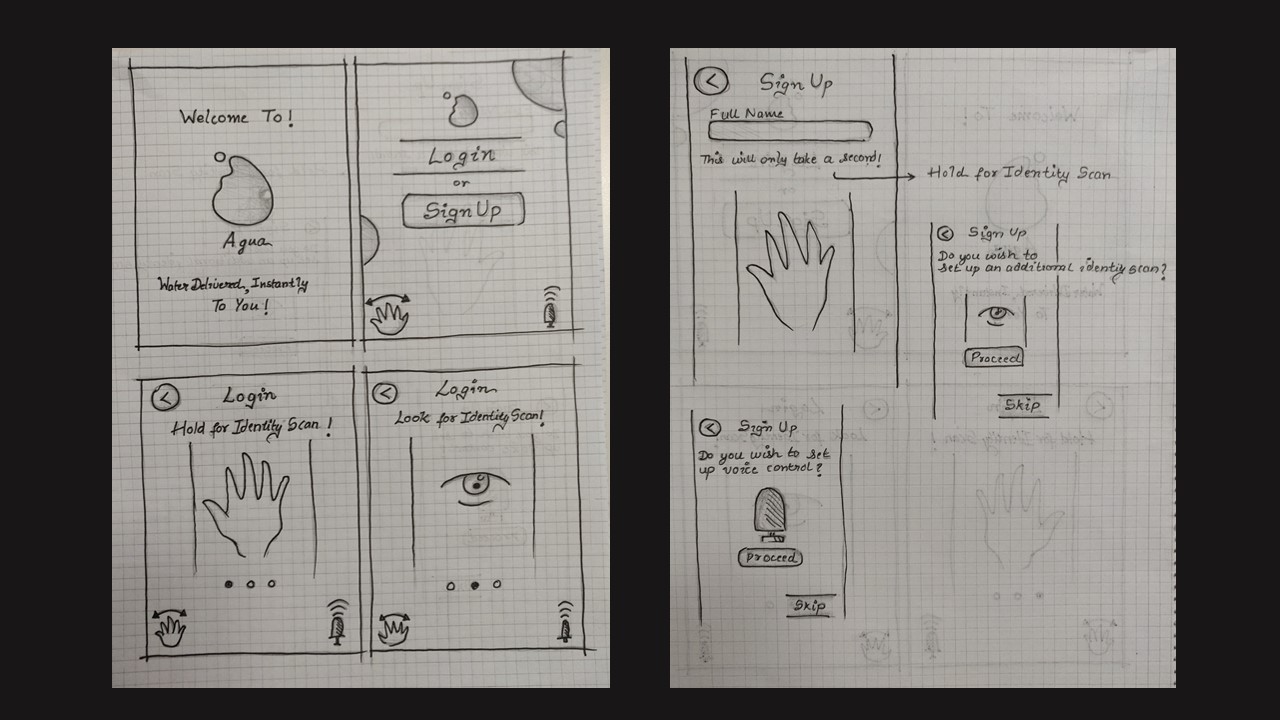 Welcome To!
Agua
Water Delivered, Instantly
To You!
Login
or
Sign Up
Login
Hold for Identity Scan!
Login
Look for Identity Scan!
Sign Up
Full Name
This will only take a second!
Hold for Identity Scan
Sign Up
Do you wish to
set up an additional identity scan?
Proceed
Skip
Sign Up
Do you wish to set
up voice control?
Proceed
Skip